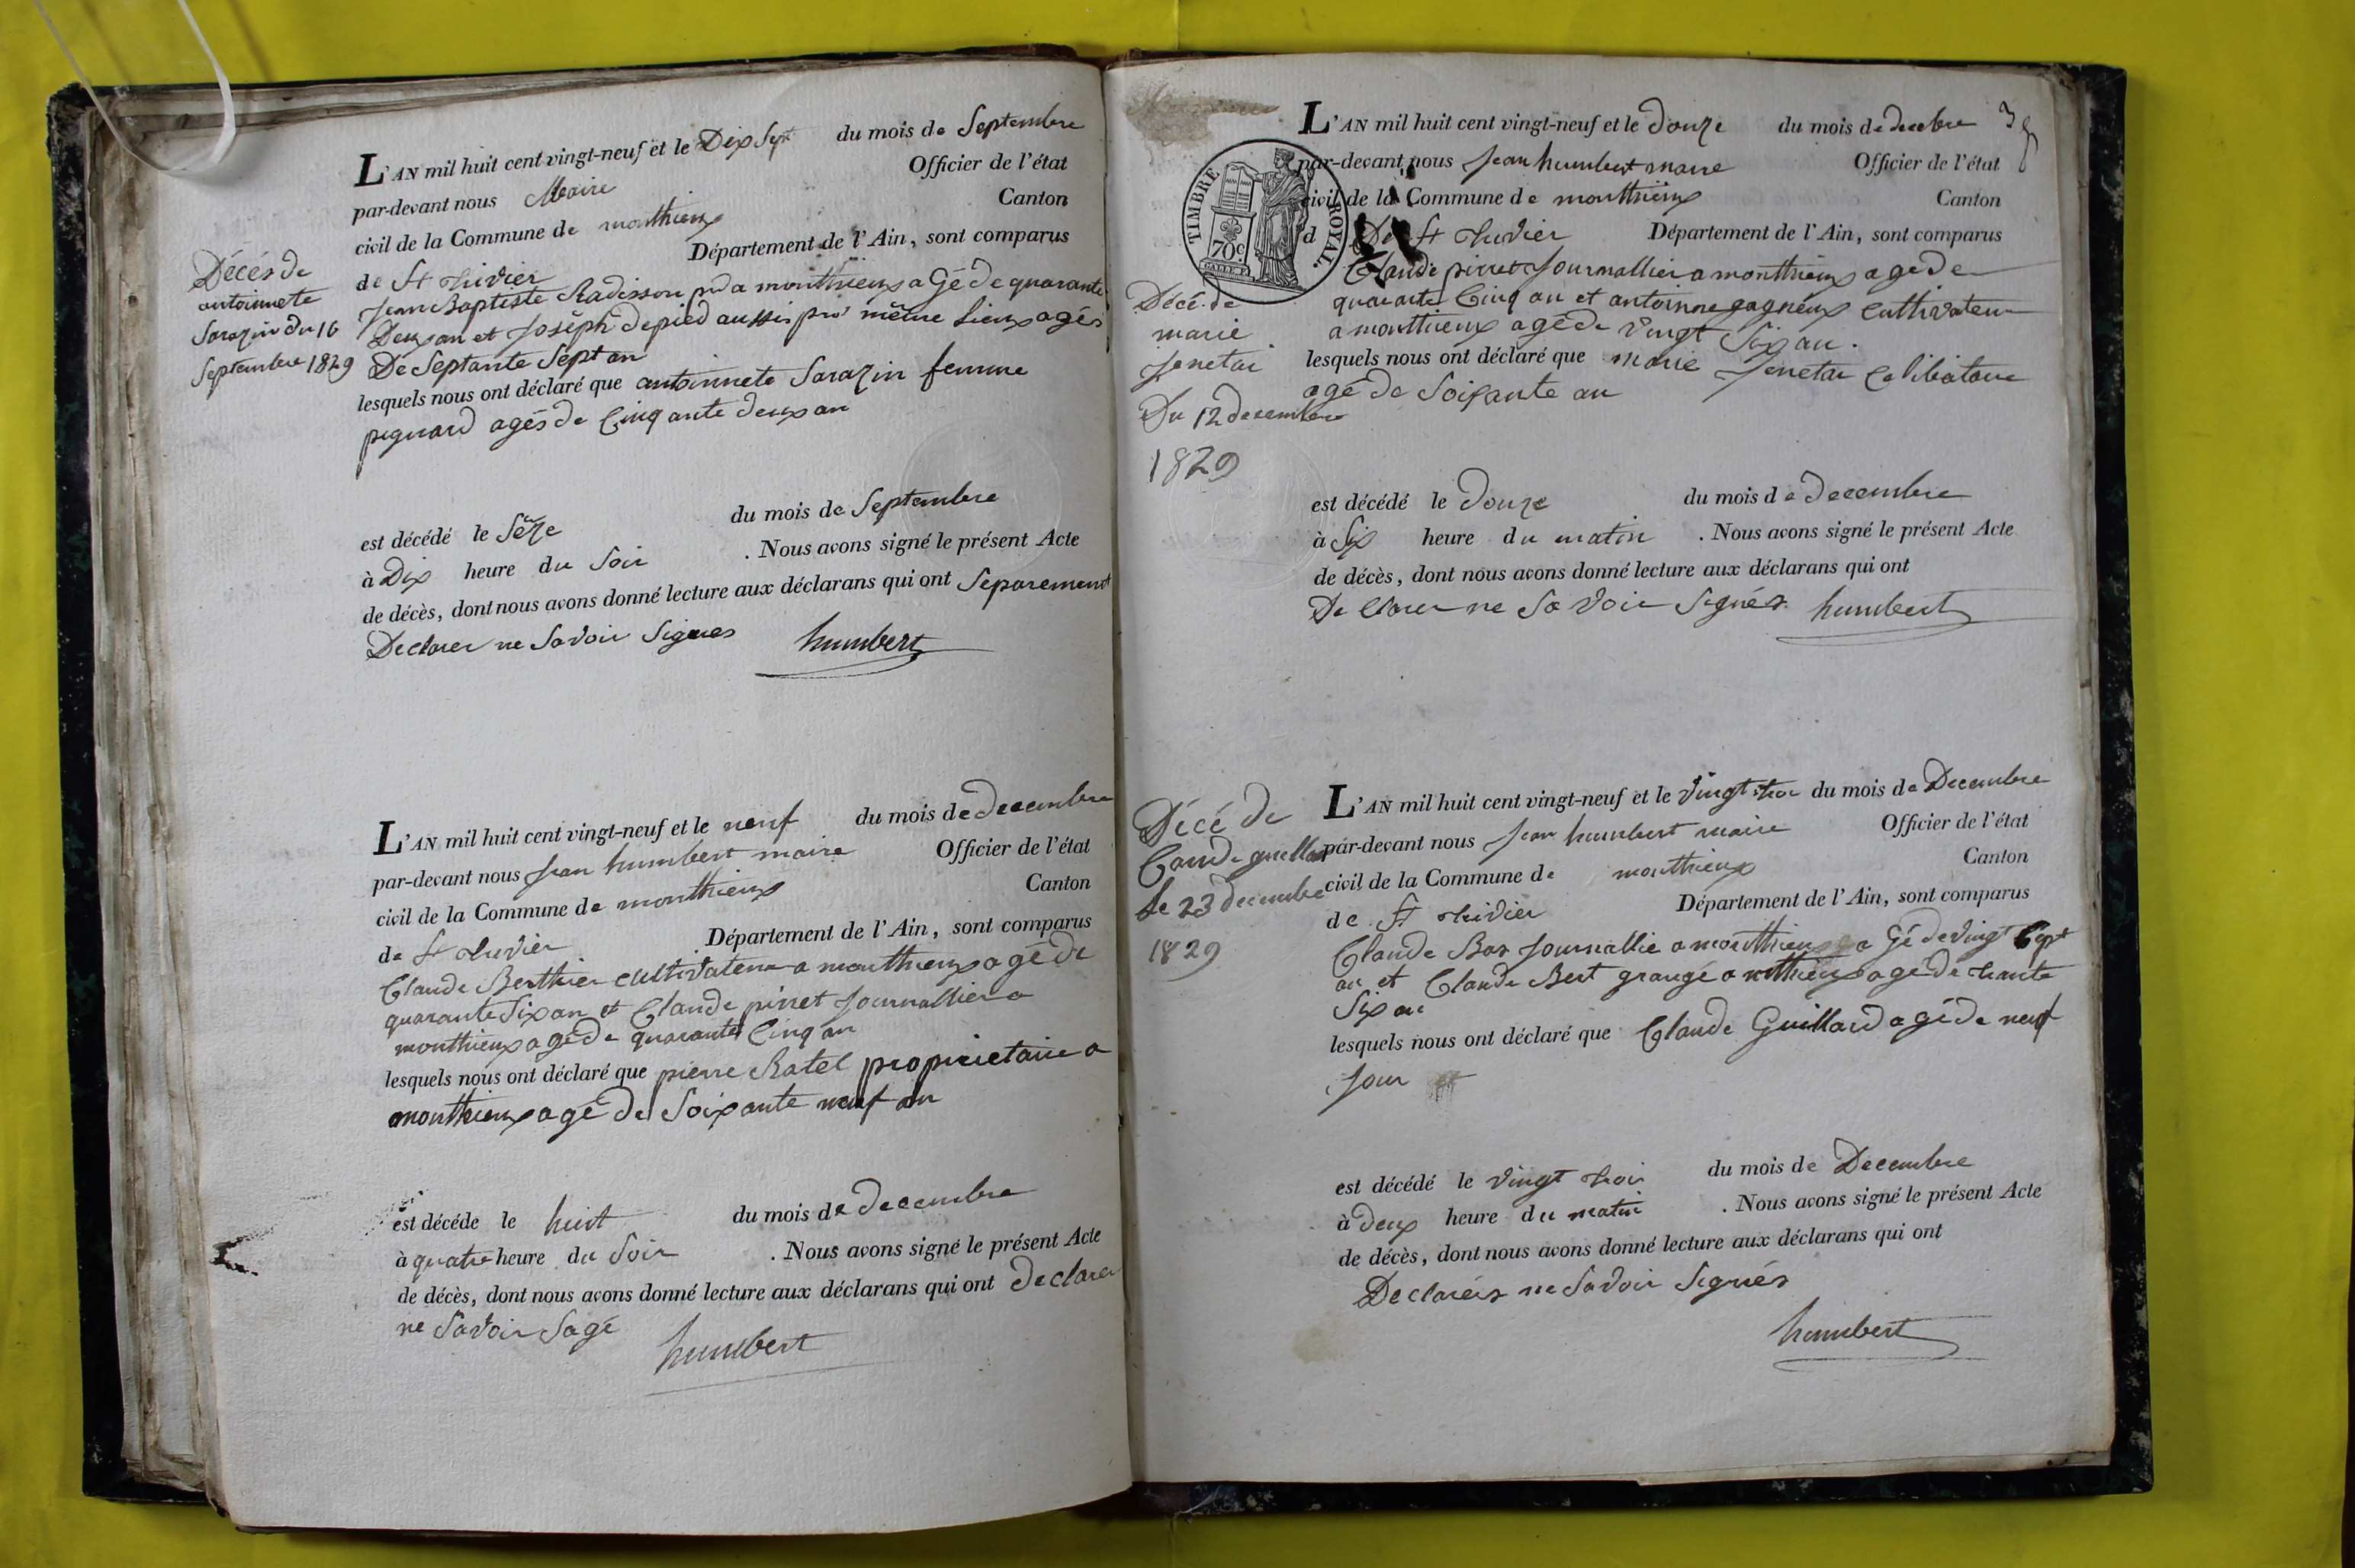 L'AN mil huit cent vingt-neuf et le Dix Sept du mois de Septembre
par-devant nous Maire Officier de l'état
civil de la Commune de monthieux Canton
de St trivier Département de l'Ain, sont comparus
Jean Baptiste Radisson a monthieux agé de quarante
Deux an et Joséph Depied aussi même lieux agés
De Septante Sept an
lesquels nous ont déclaré que antoinnete Sarazin femme
pignard agés de Cinqante deux an
Décés de
antoinnete
Sarazin du 16
Septembre 1829
est décédé le Séze du mois de Septembre
à Dix heure du Soir . Nous avons signé le présent Acte
de décès, dont nous avons donné lecture aux déclarans qui ont Séparement
Declarer ne Savoir Signes humbert
L'AN mil huit cent vingt-neuf et le neuf du mois de decembre
par-devant nous Jean humbert maire Officier de l'état
civil de la Commune de monthieux Canton
de St trivier Département de l'Ain, sont comparus
Claude Berthier cultivateur a monthieux agé de
quarante Six an et Claude pirret Journallier a
monthieux agé de quarante Cinq an
lesquels nous ont déclaré que pierre Ratel proprietaire a
monthieux agé de Soixante neuf an
est décéde le huit du mois de decembre
à quatre heure du Soir . Nous avons signé le présent Acte
de décès, dont nous avons donné lecture aux déclarans qui ont Declarer
ne Savoir Sagé
humbert
38
L'AN mil huit cent vingt-neuf et le douze du mois de decebre
par-devant nous Jean humbert maire Officier de l'état
civil de la Commune de monthieux Canton
d De St trivier Département de l'Ain, sont comparus
TIMBRE ROYAL.
70c
Claude pirret Journallier a monthieux agé de
quarante Cinq an et antoinne gagneux Cultivateur
a monthieux agé de Vingt Six an.
lesquels nous ont déclaré que marie Jenetai Celibataire
agé de Soixante an
Décé de
marie
Jenetai
Du 12 decembre
1829
est décédé le douze du mois de decembre
à Six heure du matin . Nous avons signé le présent Acte
de décès, dont nous avons donné lecture aux déclarans qui ont
De Clarer ne Savoir Signés humbert
L'AN mil huit cent vingt-neuf et le Vingt troi du mois de Decembre
par-devant nous Jean humbert maire Officier de l'état
civil de la Commune de monthieux Canton
de St trivier Département de l'Ain, sont comparus
Claude Bas Journallie a monthieux a Gé de vingt Sept
an et Claude Bert grangé a agé de trante
Six an
lesquels nous ont déclaré que Claude Guillard agé de neuf
Jour
Décé de
Caude guillar
le 23 decembre
1829
est décédé le vingt troi du mois de Decembre
à deux heure du matin . Nous avons signé le présent Acte
de décès, dont nous avons donné lecture aux déclarans qui ont
Declarérs ne Savoir Signés
humbert